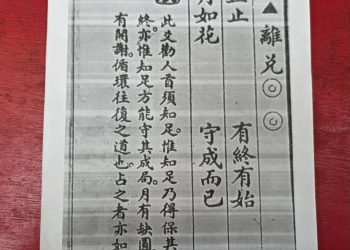 ▲離兌◎◎
止 有終有始
月如花 守成而已
此爻勸人首須知足。惟知足乃得保其
終。亦惟知足方能守其成局。月有缺圓
有開謝。循環往復之道也。占之者亦如